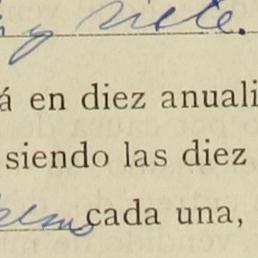 y siete.
á en diez anuali
siendo las diez
cada una,